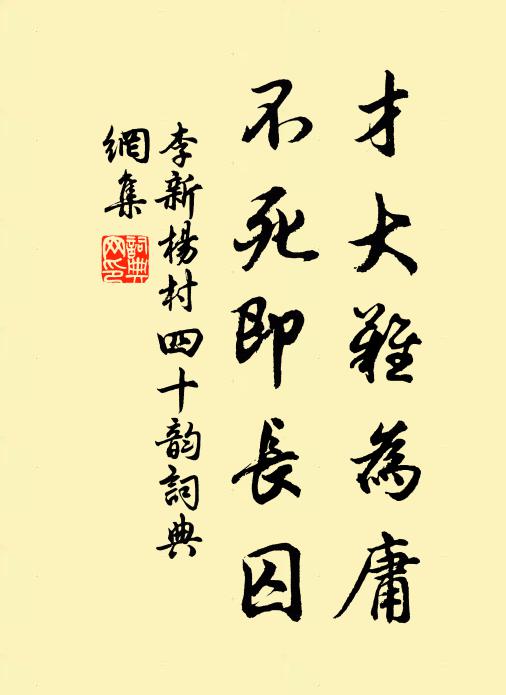 才大難為庸
不死即長囚
李新楊村四十韵詞典
網集
詞典
网印